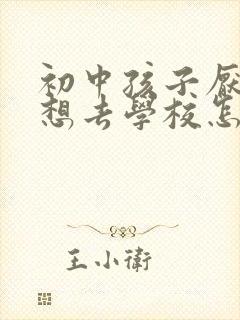 初中孩子厭
想去學校怎
王小衛